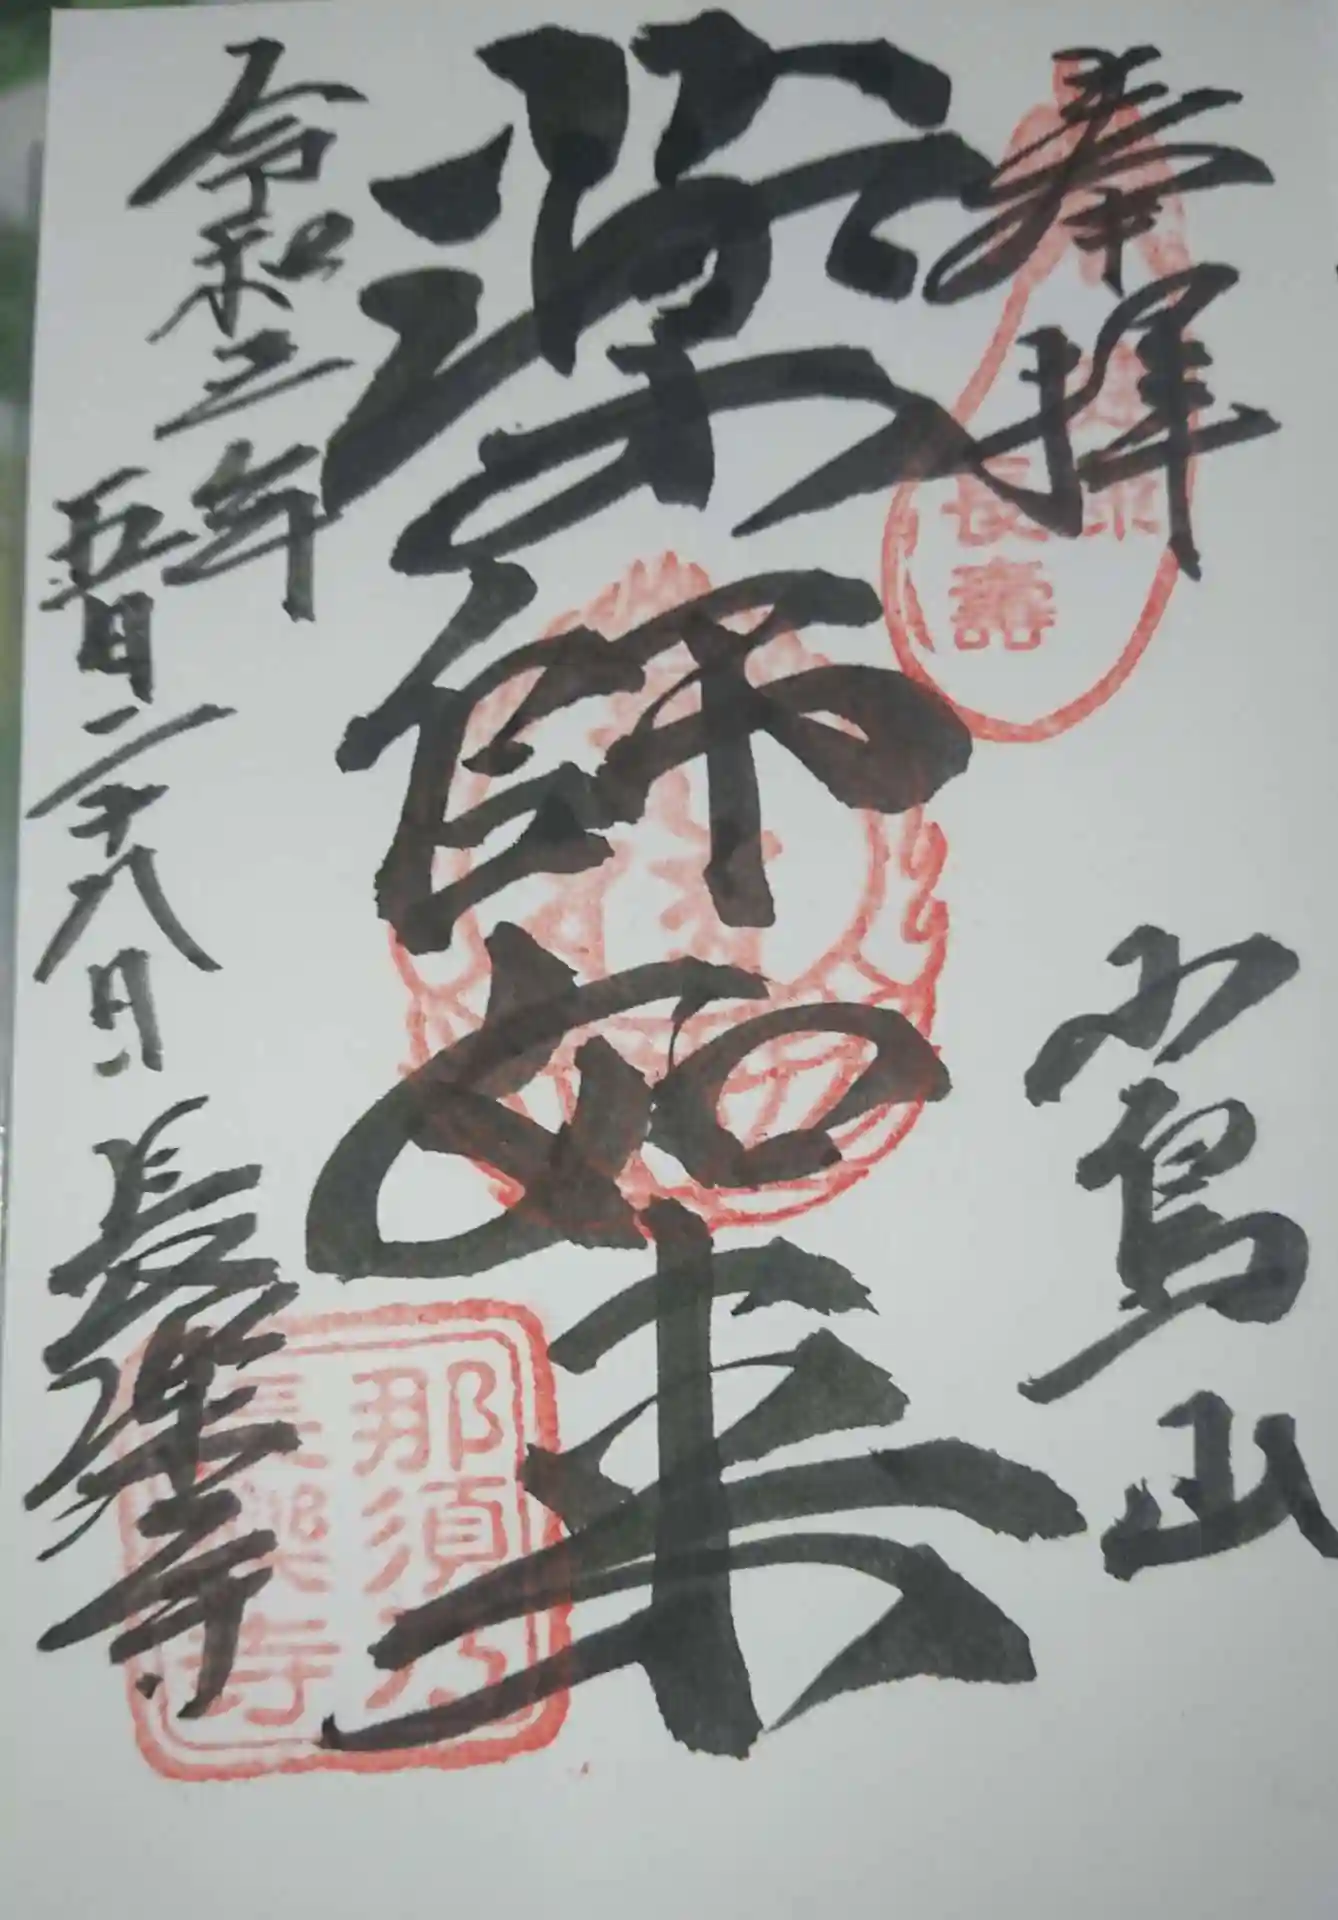 奉拝
長壽
小鳥山
薬師如来
令和三年
五月二十八日
長楽寺
那須乃
長樂寺